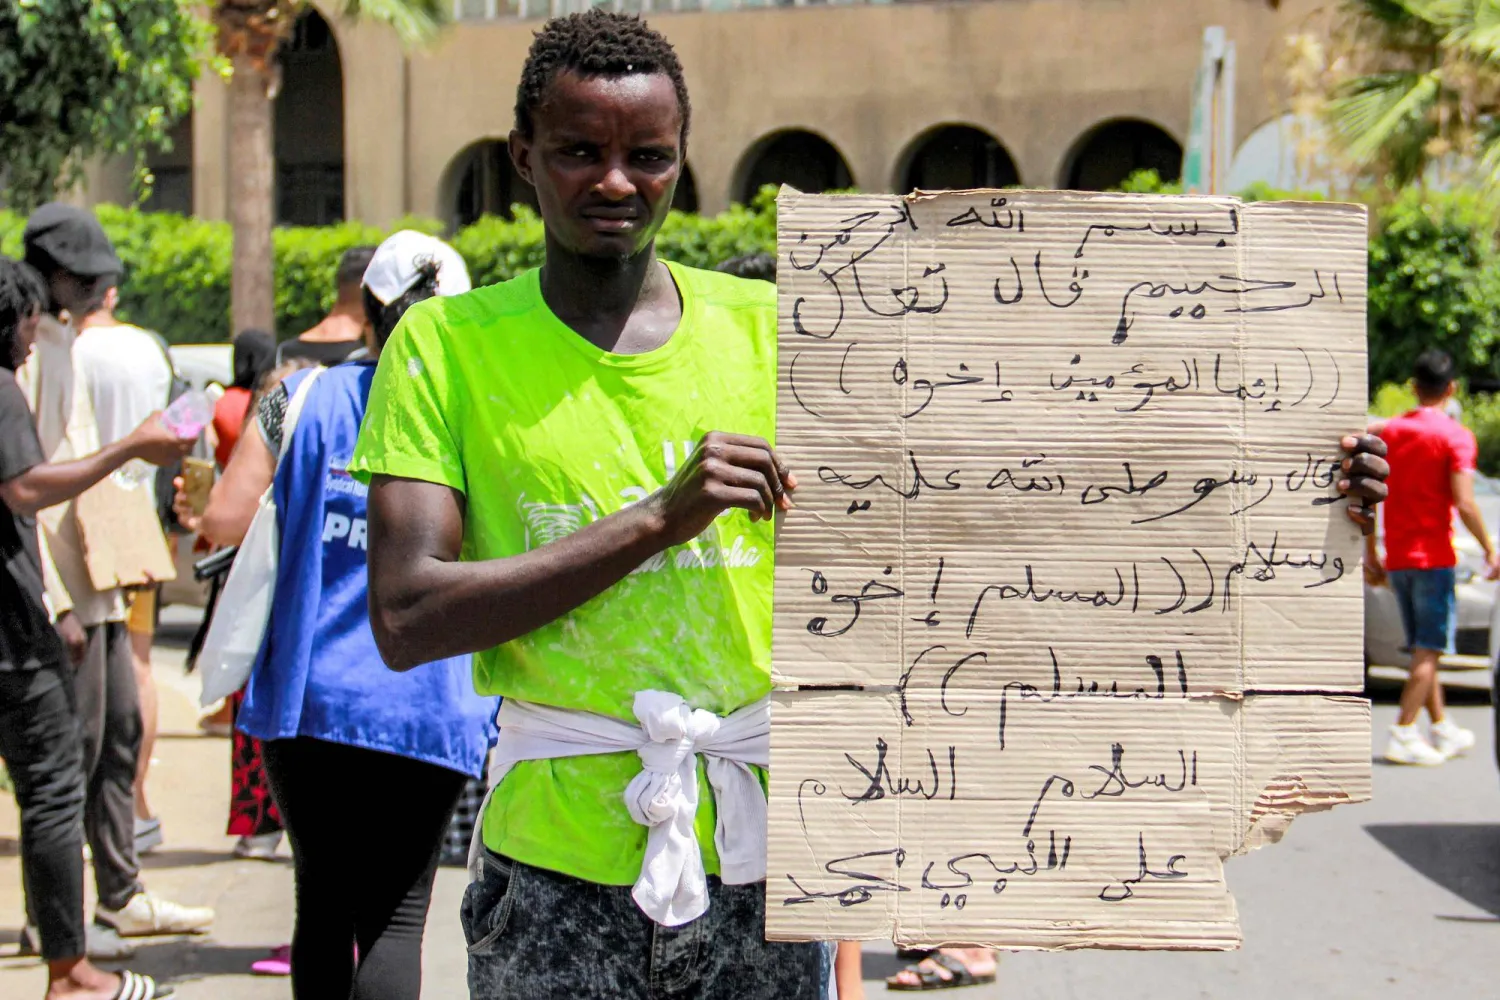 بسم الله الرحمن
الرحيم قال تعال
((إنما المؤمين إخوه))
وقال رسو صلى الله عليه
وسلام ((المسلم إخوه
المسلم))
السلام السلام
على النبي محمد
PR
macha